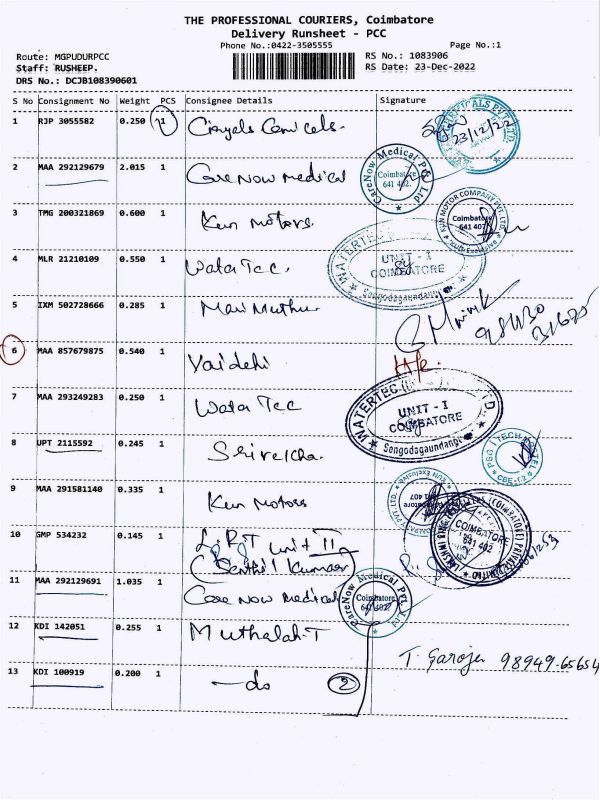 THE PROFESSIONAL COURIERS, Coimbatore
Delivery Runsheet - PCC
Phone No.:0422-3505555 Page No.:1
Route: MGPUDURPCC RS No.: 1083906
Staff: RUSHEEP. RS Date: 23-Dec-2022
DRS No.: DCJB108390601
S No Consignment No Weight PCS Consignee Details Signature
1 RJP 3055582 0.250 1 23/12/22
2 MAA 292129679 2.015 1 Care Now medical CareNow Medical Pvt. Ltd Coimbatore 641 402.
3 TMG 200321869 0.600 1 Ken Motors. Coimbatore 641 407
4 MLR 21210109 0.550 1 Wata Tec. UNIT - I COIMBATORE Sengodagaundanpudur
5 IXM 502728666 0.285 1 Mari Muthu.
6 MAA 857679875 0.540 1 Vaidehi
7 MAA 293249283 0.250 1 Wata Tec WATERTEC UNIT - I COIMBATORE
8 UPT 2115592 0.245 1 PSG TECH CBE
9 MAA 291581140 0.335 1 Ken Motors
10 GMP 534232 0.145 1 L.R.T Unit II COIMBATORE 641 402
Senthil Kumar
11 MAA 292129691 1.035 1 Care Now medical CareNow Medical Pvt. Ltd Coimbatore 641 402.
12 KDI 142051 0.255 1 Muthalah T
T. Saroja 98949-65654
13 KDI 100919 0.200 1 —do 2